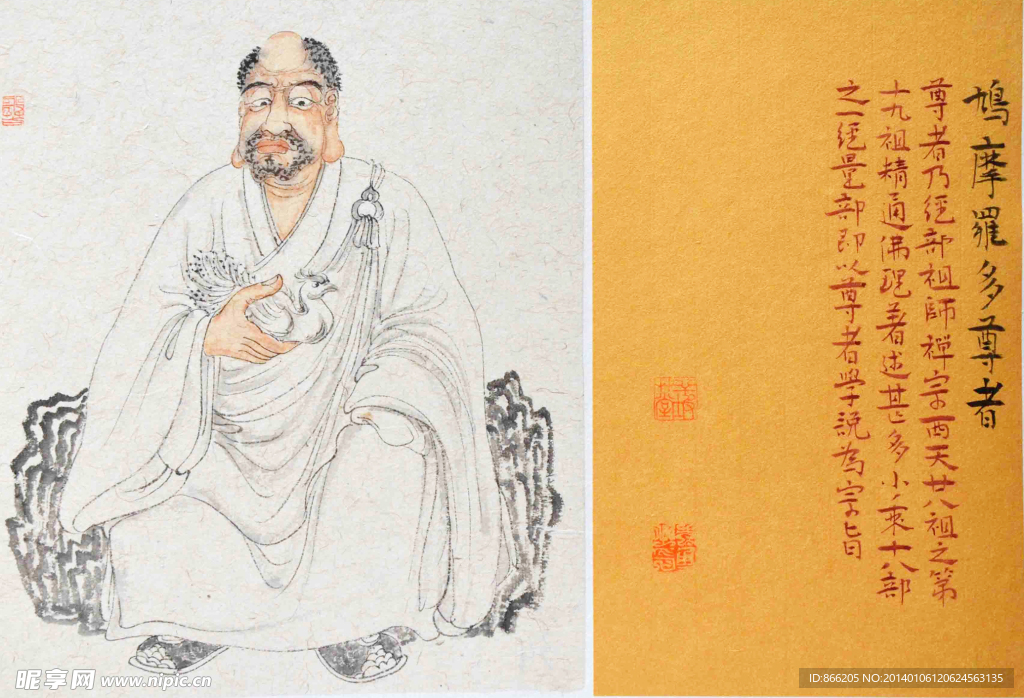 鳩摩羅多尊者
尊者乃經部祖師禅宗西天廿八祖之第
十九祖精通佛理著述甚多小乘十八部
之一經量部即以尊者學説為宗旨
昵享网 www.nipic.cn
ID:866205 NO:20140106120624563135